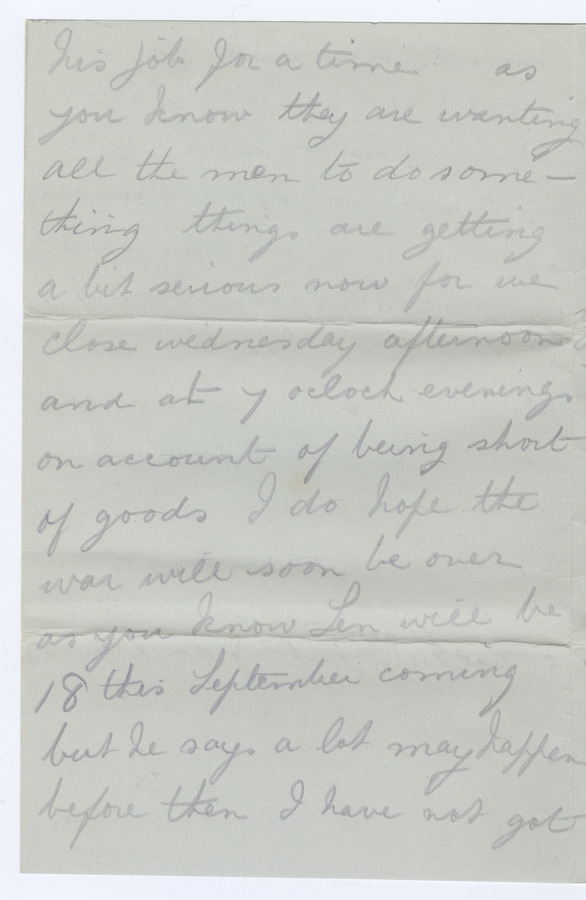 his job for a time as
you know they are wanting
all the men to do some-
thing things are getting
a bit serious now for we
close wednesday afternoon
and at 7 oclock evenings
on account of being short
of goods I do hope the
war will soon be over
as you know Len will be
18 this September coming
but he says a lot may happen
before then I have not got